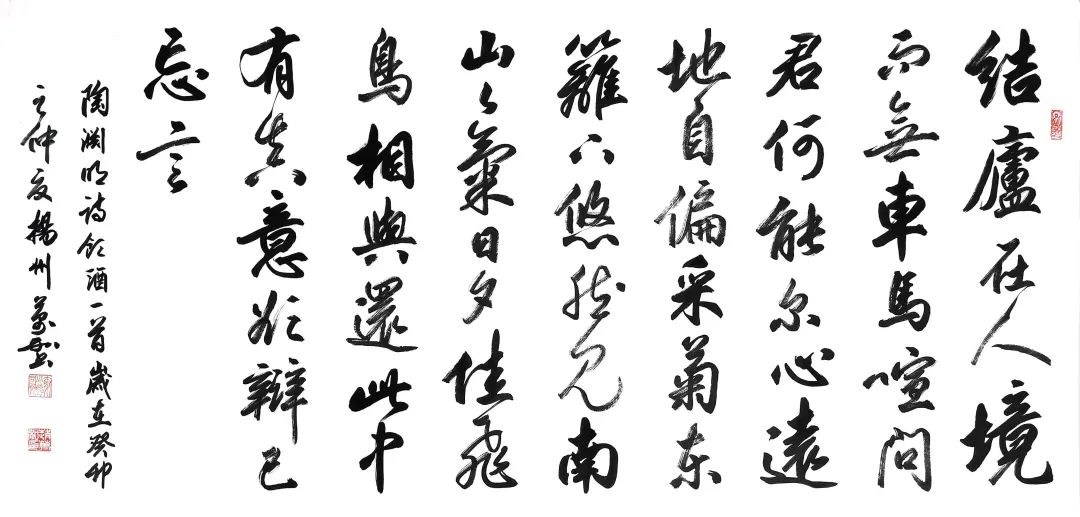 結廬在人境
而無車馬喧問
君何能尔心遠
地自偏采菊东
籬下悠然见南
山〻氣日夕佳飛
鳥相與還此中
有真意欲辯已
忘言
陶渊明诗饮酒一首歲在癸卯
之仲夏揚州